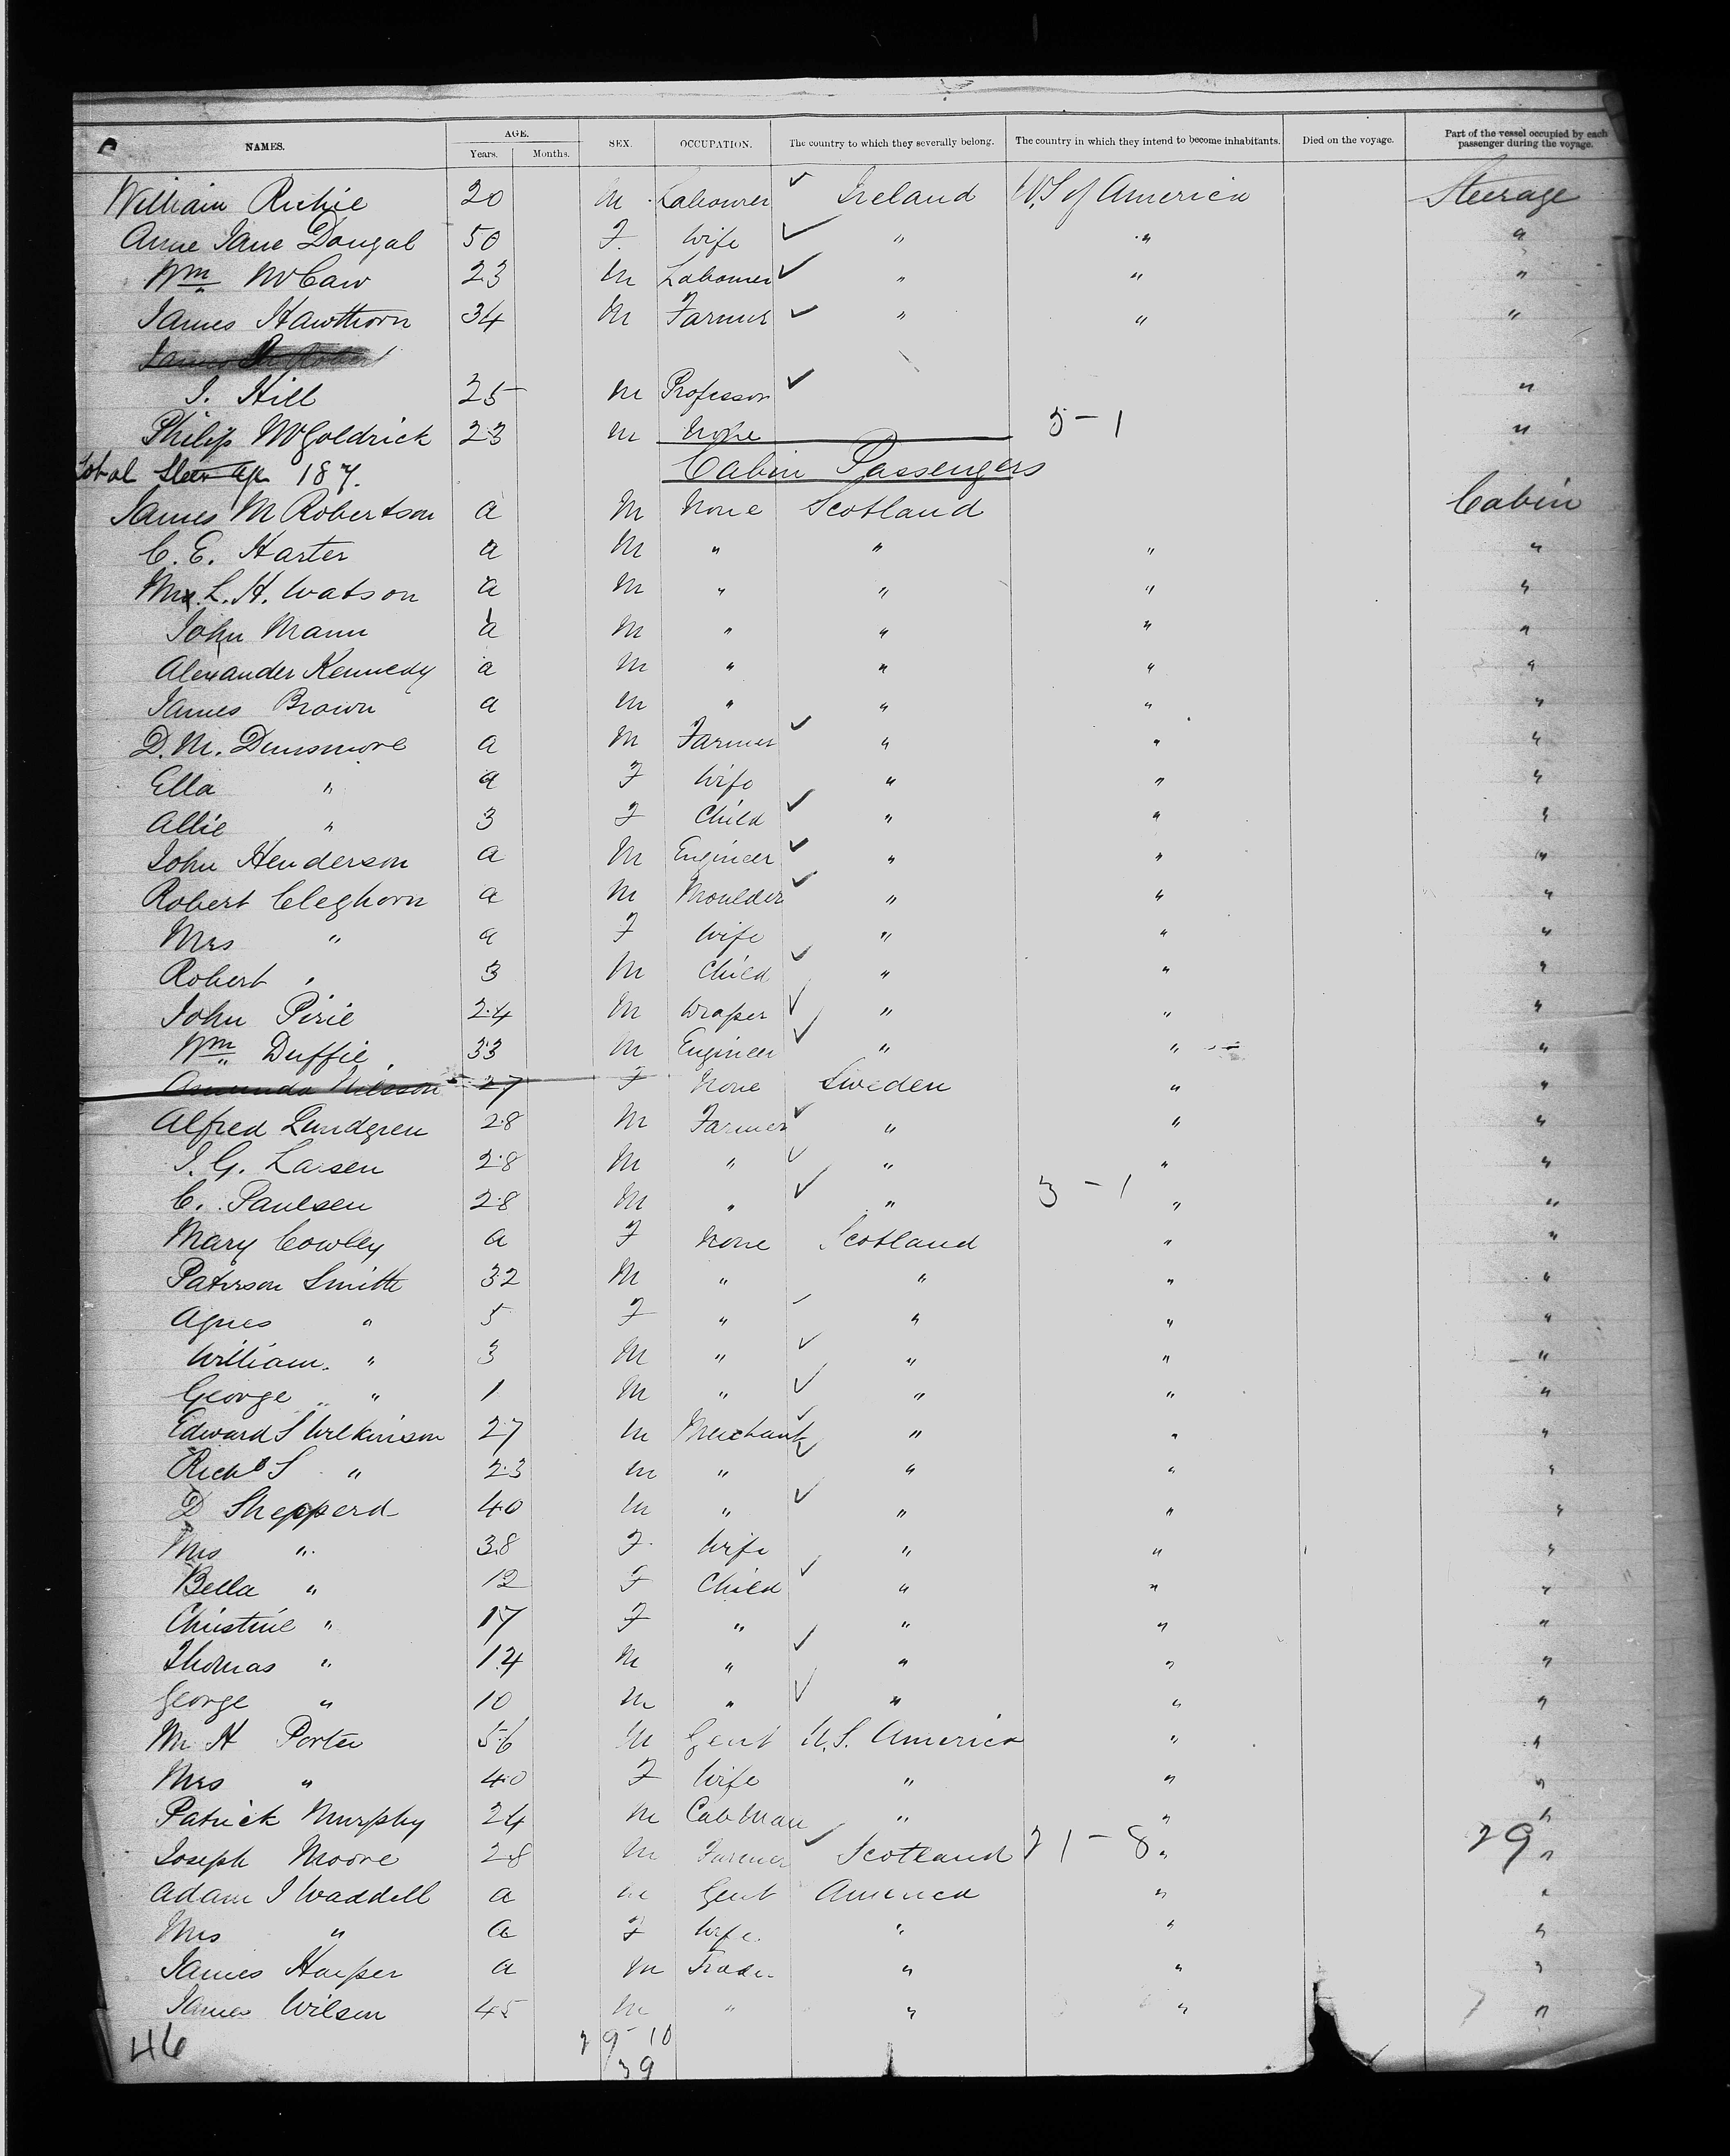 NAMES. AGE. Years. Months. SEX. OCCUPATION. The country to which they severally belong. The country in which they intend to become inhabitants. Died on the voyage. Part of the vessel occupied by each passenger during the voyage.
William Richie 20 M Labourer Ireland U.S of America Steerage
Anne Jane Dougal 50 F. Wife " " "
Wm McCaw 23 M Labourer " " "
James Hawthorn 34 M Farmer " " "
James
J. Hill 25 M Professor "
Philip McGoldrick 23 M None 5-1 "
Total Steerage 187. Cabin Passengers
James M Robertson a M None Scotland Cabin
C. E. Harter a M " " " "
L. H. Watson a M " " " "
John Mann a M " " " "
Alexander Kennedy a M " " " "
James Brown a M " " " "
D. M. Dunsmore a M Farmer " " "
Ella " a F Wife " " "
Allie " 3 F Child " " "
John Henderson a M Engineer " " "
Robert Cleghorn a M Moulder " " "
Mrs " a F Wife " " "
Robert " 3 M Child " " "
John Pirie 24 M Draper " " "
Wm Duffie 33 M Engineer " " "
Amanda Nilsson 27 F None Sweden " "
Alfred Lundgren 28 M Farmer " " "
J. G. Larsen 28 M " " " "
C. Paulsen 28 M " " 3-1 " "
Mary Cowley a F None Scotland " "
Paterson Smith 32 M " " " "
Agnes " 5 F " " " "
William " 3 M " " " "
George " 1 M " " " "
Edward S Wilkinson 27 M Merchant " " "
Richd S " 23 M " " " "
D Shepperd 40 M " " " "
Mrs " 38 F. Wife " " "
Bella " 12 F Child " " "
Christine " 17 F " " " "
Thomas " 14 M " " " "
George " 10 M " " " "
Mr H Porter 56 M Gent U.S. America " "
Mrs " 40 F Wife " " "
Patrick Murphy 24 M Cabman " " "
Joseph Moore 28 M Farmer Scotland 21-8 " 29 "
Adam J Waddell a M Gent America " "
Mrs " a F Wife " " "
James Harper a M Trader " " "
James Wilson 45 M " " " "
46 29-10
39